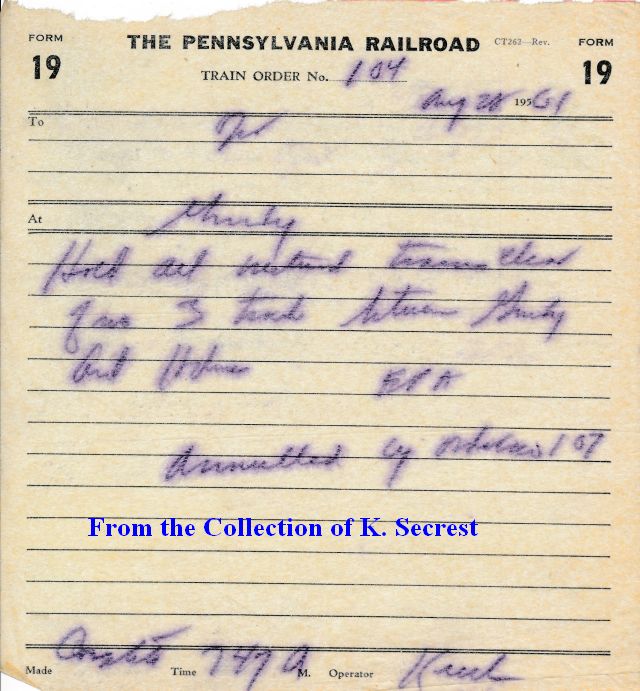 FORM 19
THE PENNSYLVANIA RAILROAD
CT262—Rev.
FORM 19
TRAIN ORDER No. 104
Aug 28 1961
To Opr
At Grundy
Hold all westward trains clear
of no 3 track between Grundy
and Holmes
Annulled by order no 107
From the Collection of K. Secrest
Made Complete Time 747 A M. Operator